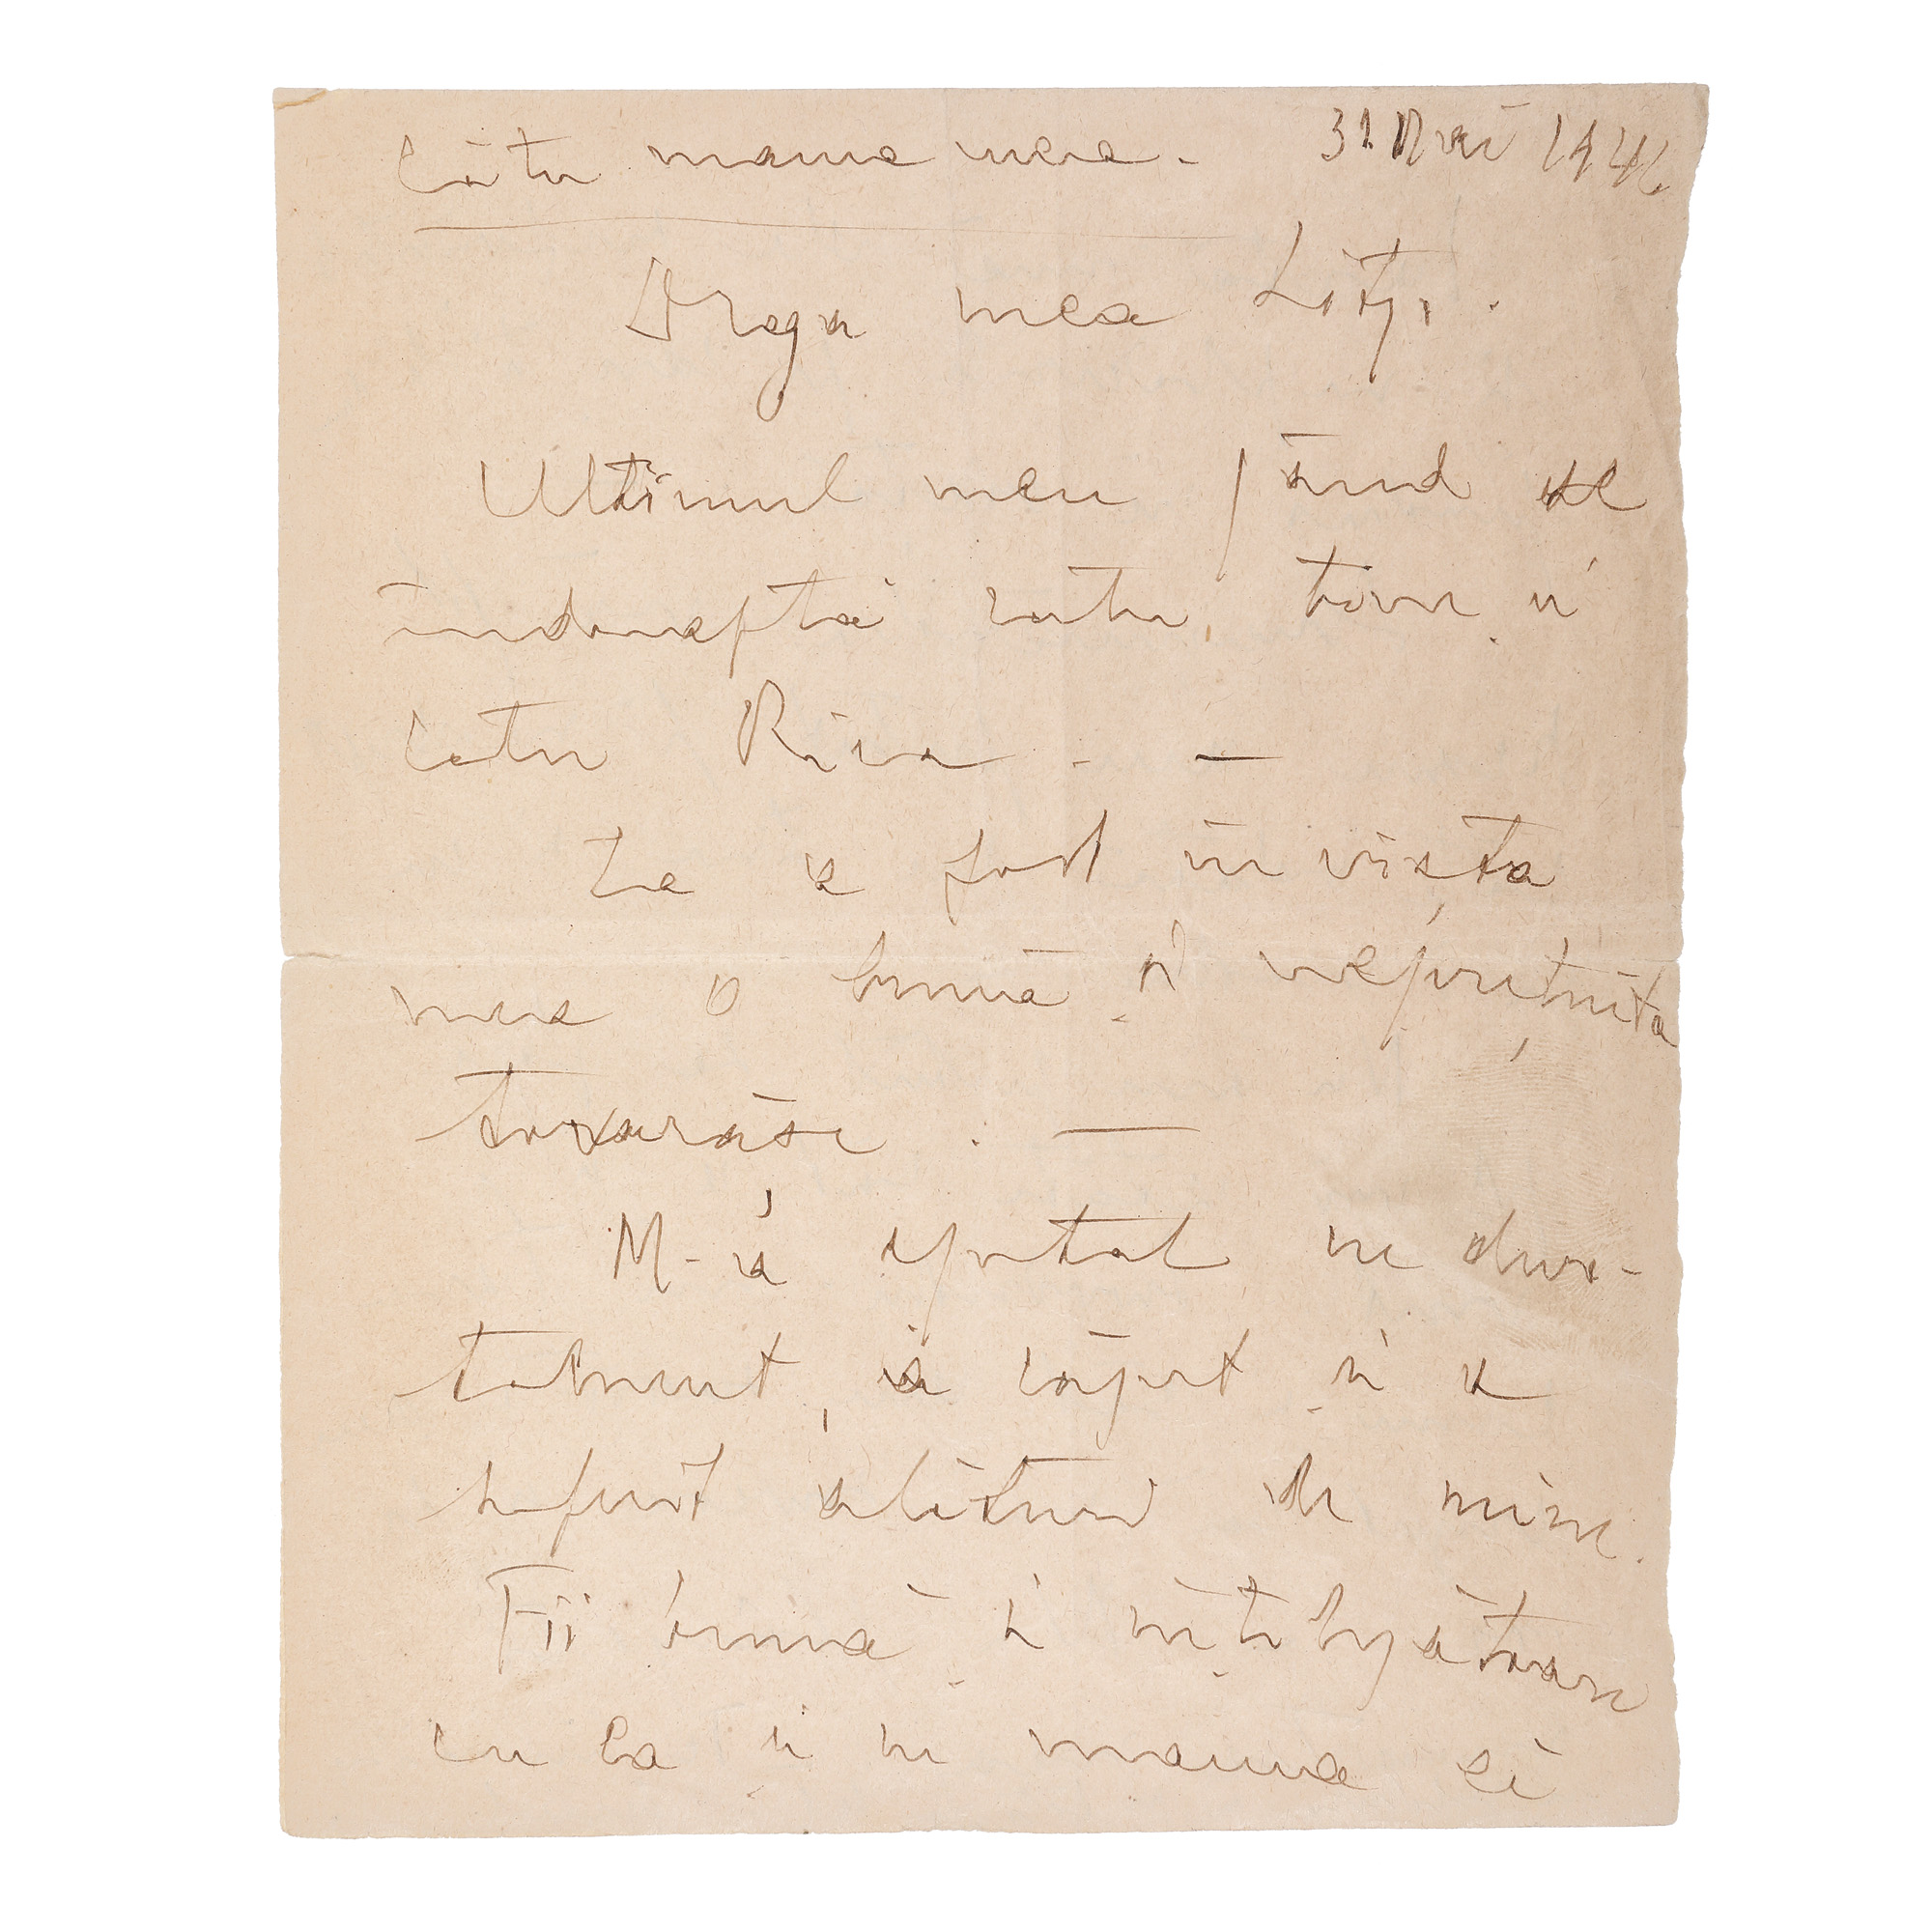 Către mama mea. 31 Mai 1946
Draga mea
Ultimul meu gând se
îndreaptă către tine și
către Rica. —
Ea a fost în viața
mea o bună și neprețuită
tovarășe. —
M-a ajutat cu devo-
tament, a și a
suferit alături de mine.
Fii bună și înțelegătoare
cu ea și cu mama ei